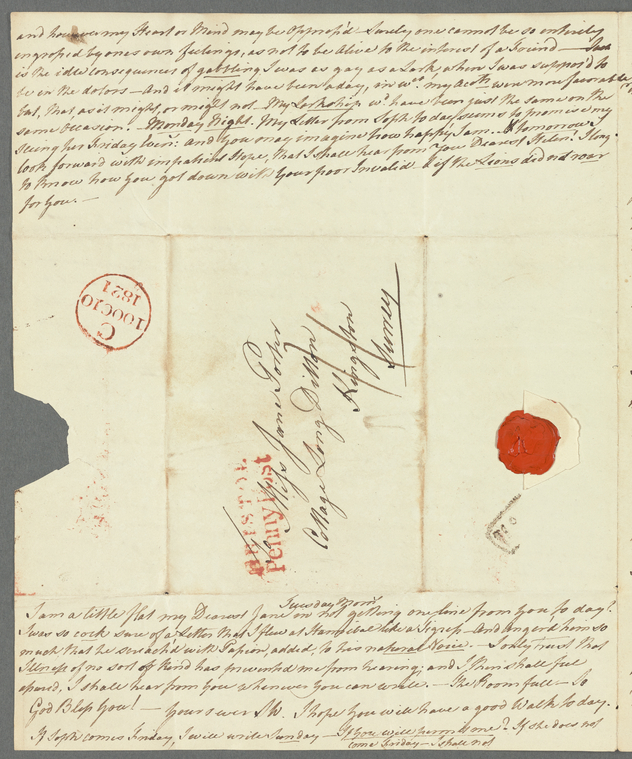 and however my Heart or Mind may be Oppress'd – Surely one cannot be so entirely
engrossed by ones own feelings, as not to be Alive to the interest of a Friend – Such
is the idle consequences of gabbling I was as gay as a Lark, when I was suppos'd to
be in the dolors – And it might have been a day, in wh. my were more favorable
but, that, as it might, or might not. My Larkship wd. have been just the same on the
same occasion. – Monday Night. My Letter from Soph to day seems to promise my
seeing her Friday Even: and you may imagine how happy I am. tomorrow I
look forward with impatient Hope, that I shall hear from You Dearest I long
to know how You got down with Your poor Invalid – & if the Lions did not roar
for You. –
C
10 OC 10
1821
Miss Jane Porter
Cottage Long Ditton
Kingston
Surrey
BRISTOL
Penny Post
No.
Tuesday Morn
I am a little flat my Dearest Jane in not getting one line from You to day!
I was so cock sure of a Letter that I flew at Hannibal like a Tigress – And angerd him so
much that he screach'd with Passion, added to his natural Voice – I only trust that
Illness of no sort or Kind has prevented me from hearing, and I then shall feel
, I shall hear from You whenever You can write. – The Room full – So
God Bless You! – Yours ever SW. I hope You will have a good Walk to day.
If Soph comes Friday, I will write Sunday – If You will permit me? If she does not
come Friday – I shall not